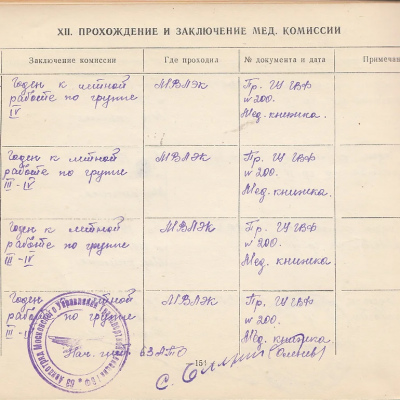 XII. ПРОХОЖДЕНИЕ И ЗАКЛЮЧЕНИЕ МЕД. КОМИССИИ
Заключение комиссии Где проходил № документа и дата Примечан
Годен к летной МВЛЭК Пр. ГУ ГВФ
работе по группе № 200.
IV Мед. книжка.
Годен к летной МВЛЭК Пр. ГУ ГВФ
работе по группе № 200.
III-IV Мед. книжка.
Годен к летной МВЛЭК Пр. ГУ ГВФ
работе по группе № 200.
III-IV Мед. книжка
Годен к летной МВЛЭК Пр. ГУ ГВФ
работе по группе № 200.
III-IV Мед. книжка.
Нач. 63 АТО
151
63 Авиаотряд Московского Управления